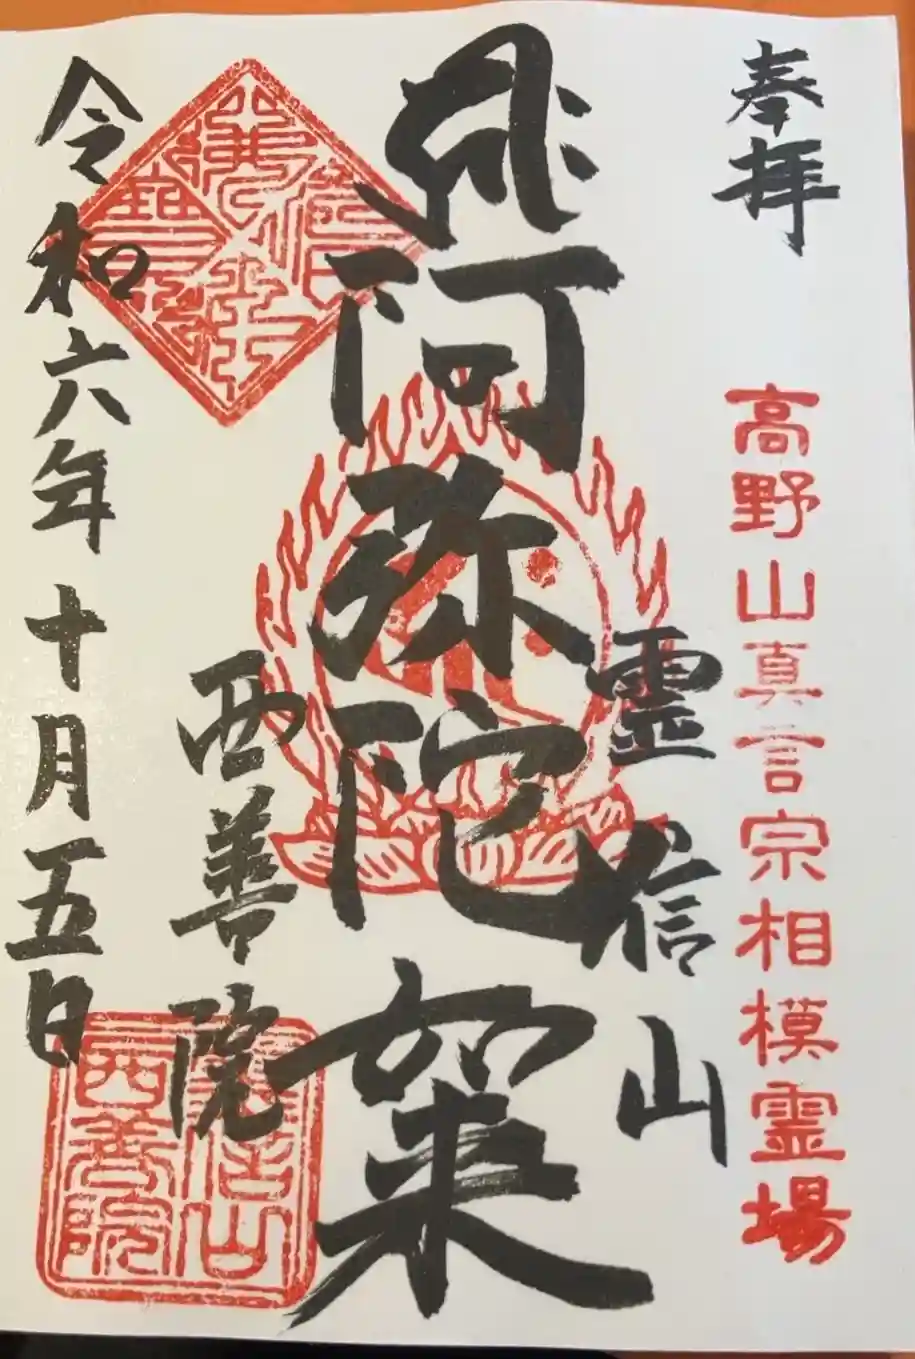 奉拝
高野山真言宗相模霊場
霊信山
阿弥陀如来
西善院
令和六年十月五日
霊信山
西善院